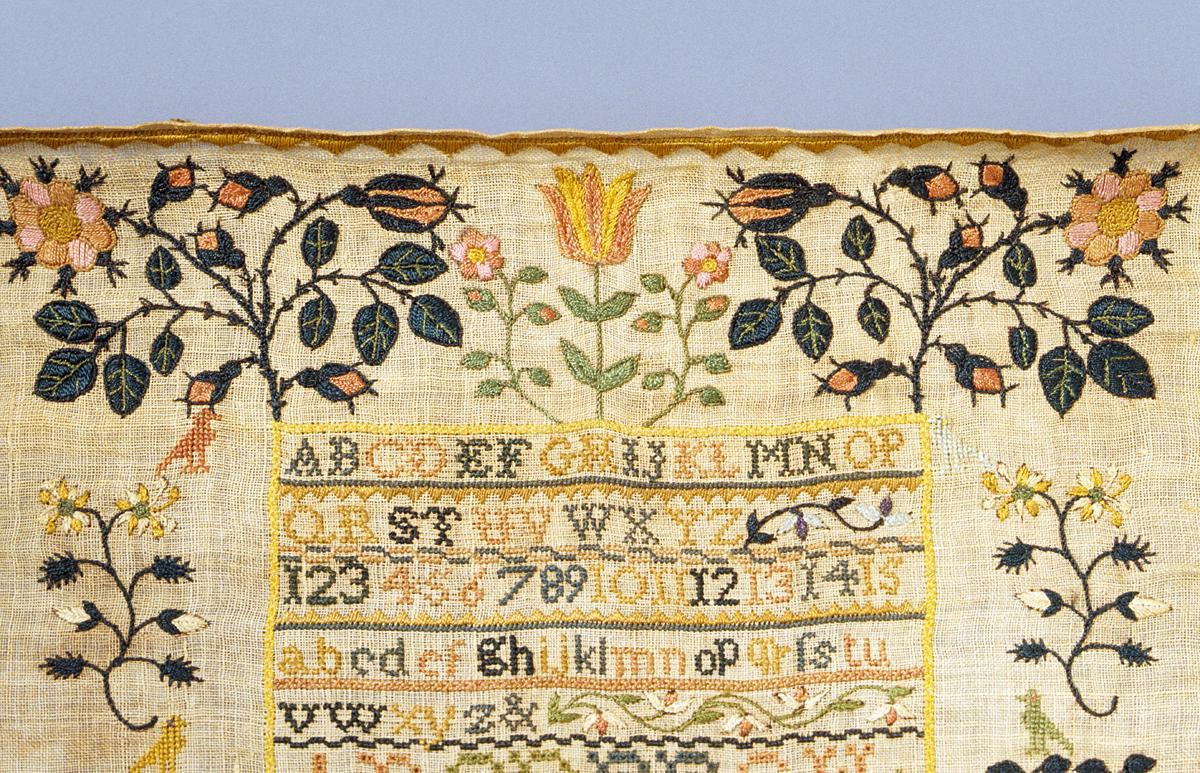 ABCDEFGHIJKLMNOP
QRSTUVWXYZ
123456789101112131415
abcdefghijklmnopqrſstu
vwxyz&